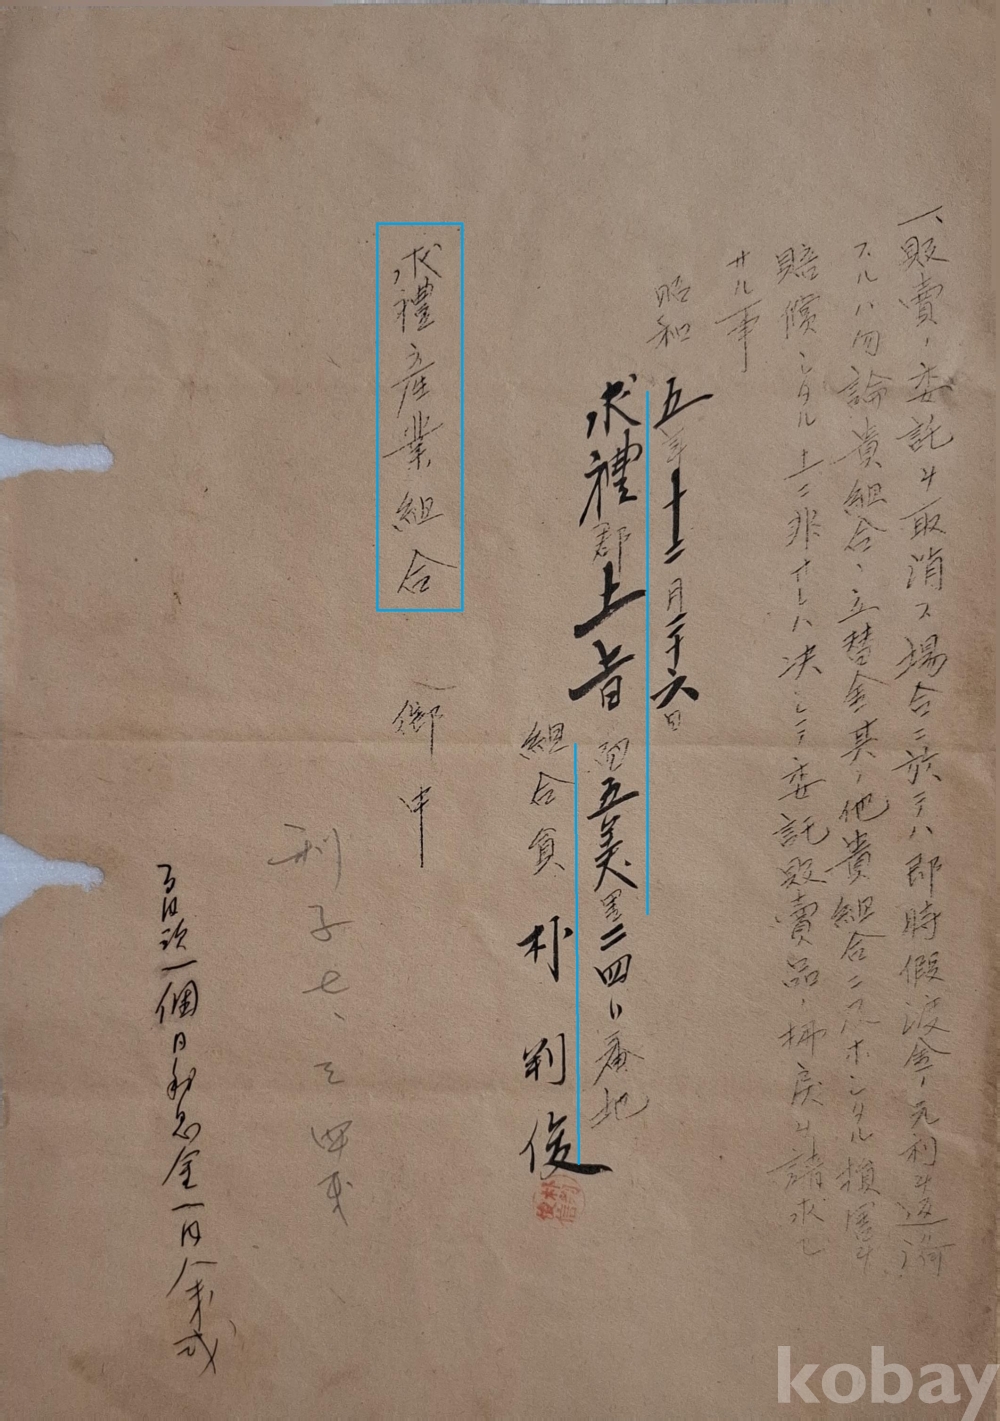 一、販賣ノ委託ヲ取消ス場合ニ於テハ即時假渡金ノ元利ヲ返濟
スルハ勿論貴組合ノ立替金其ノ他貴組合ニ及ホシタル損害ヲ
賠償シタル上ニ非ザレハ決シテ委託販賣品ノ拂戻ヲ請求セ
サル事
昭和五年十二月二十六日
求禮郡上旨面五美里二四八番地
組合員 朴判俊
求禮産業組合 御中
利子七、三四戔
一個月利息金一円八戔式
kobay